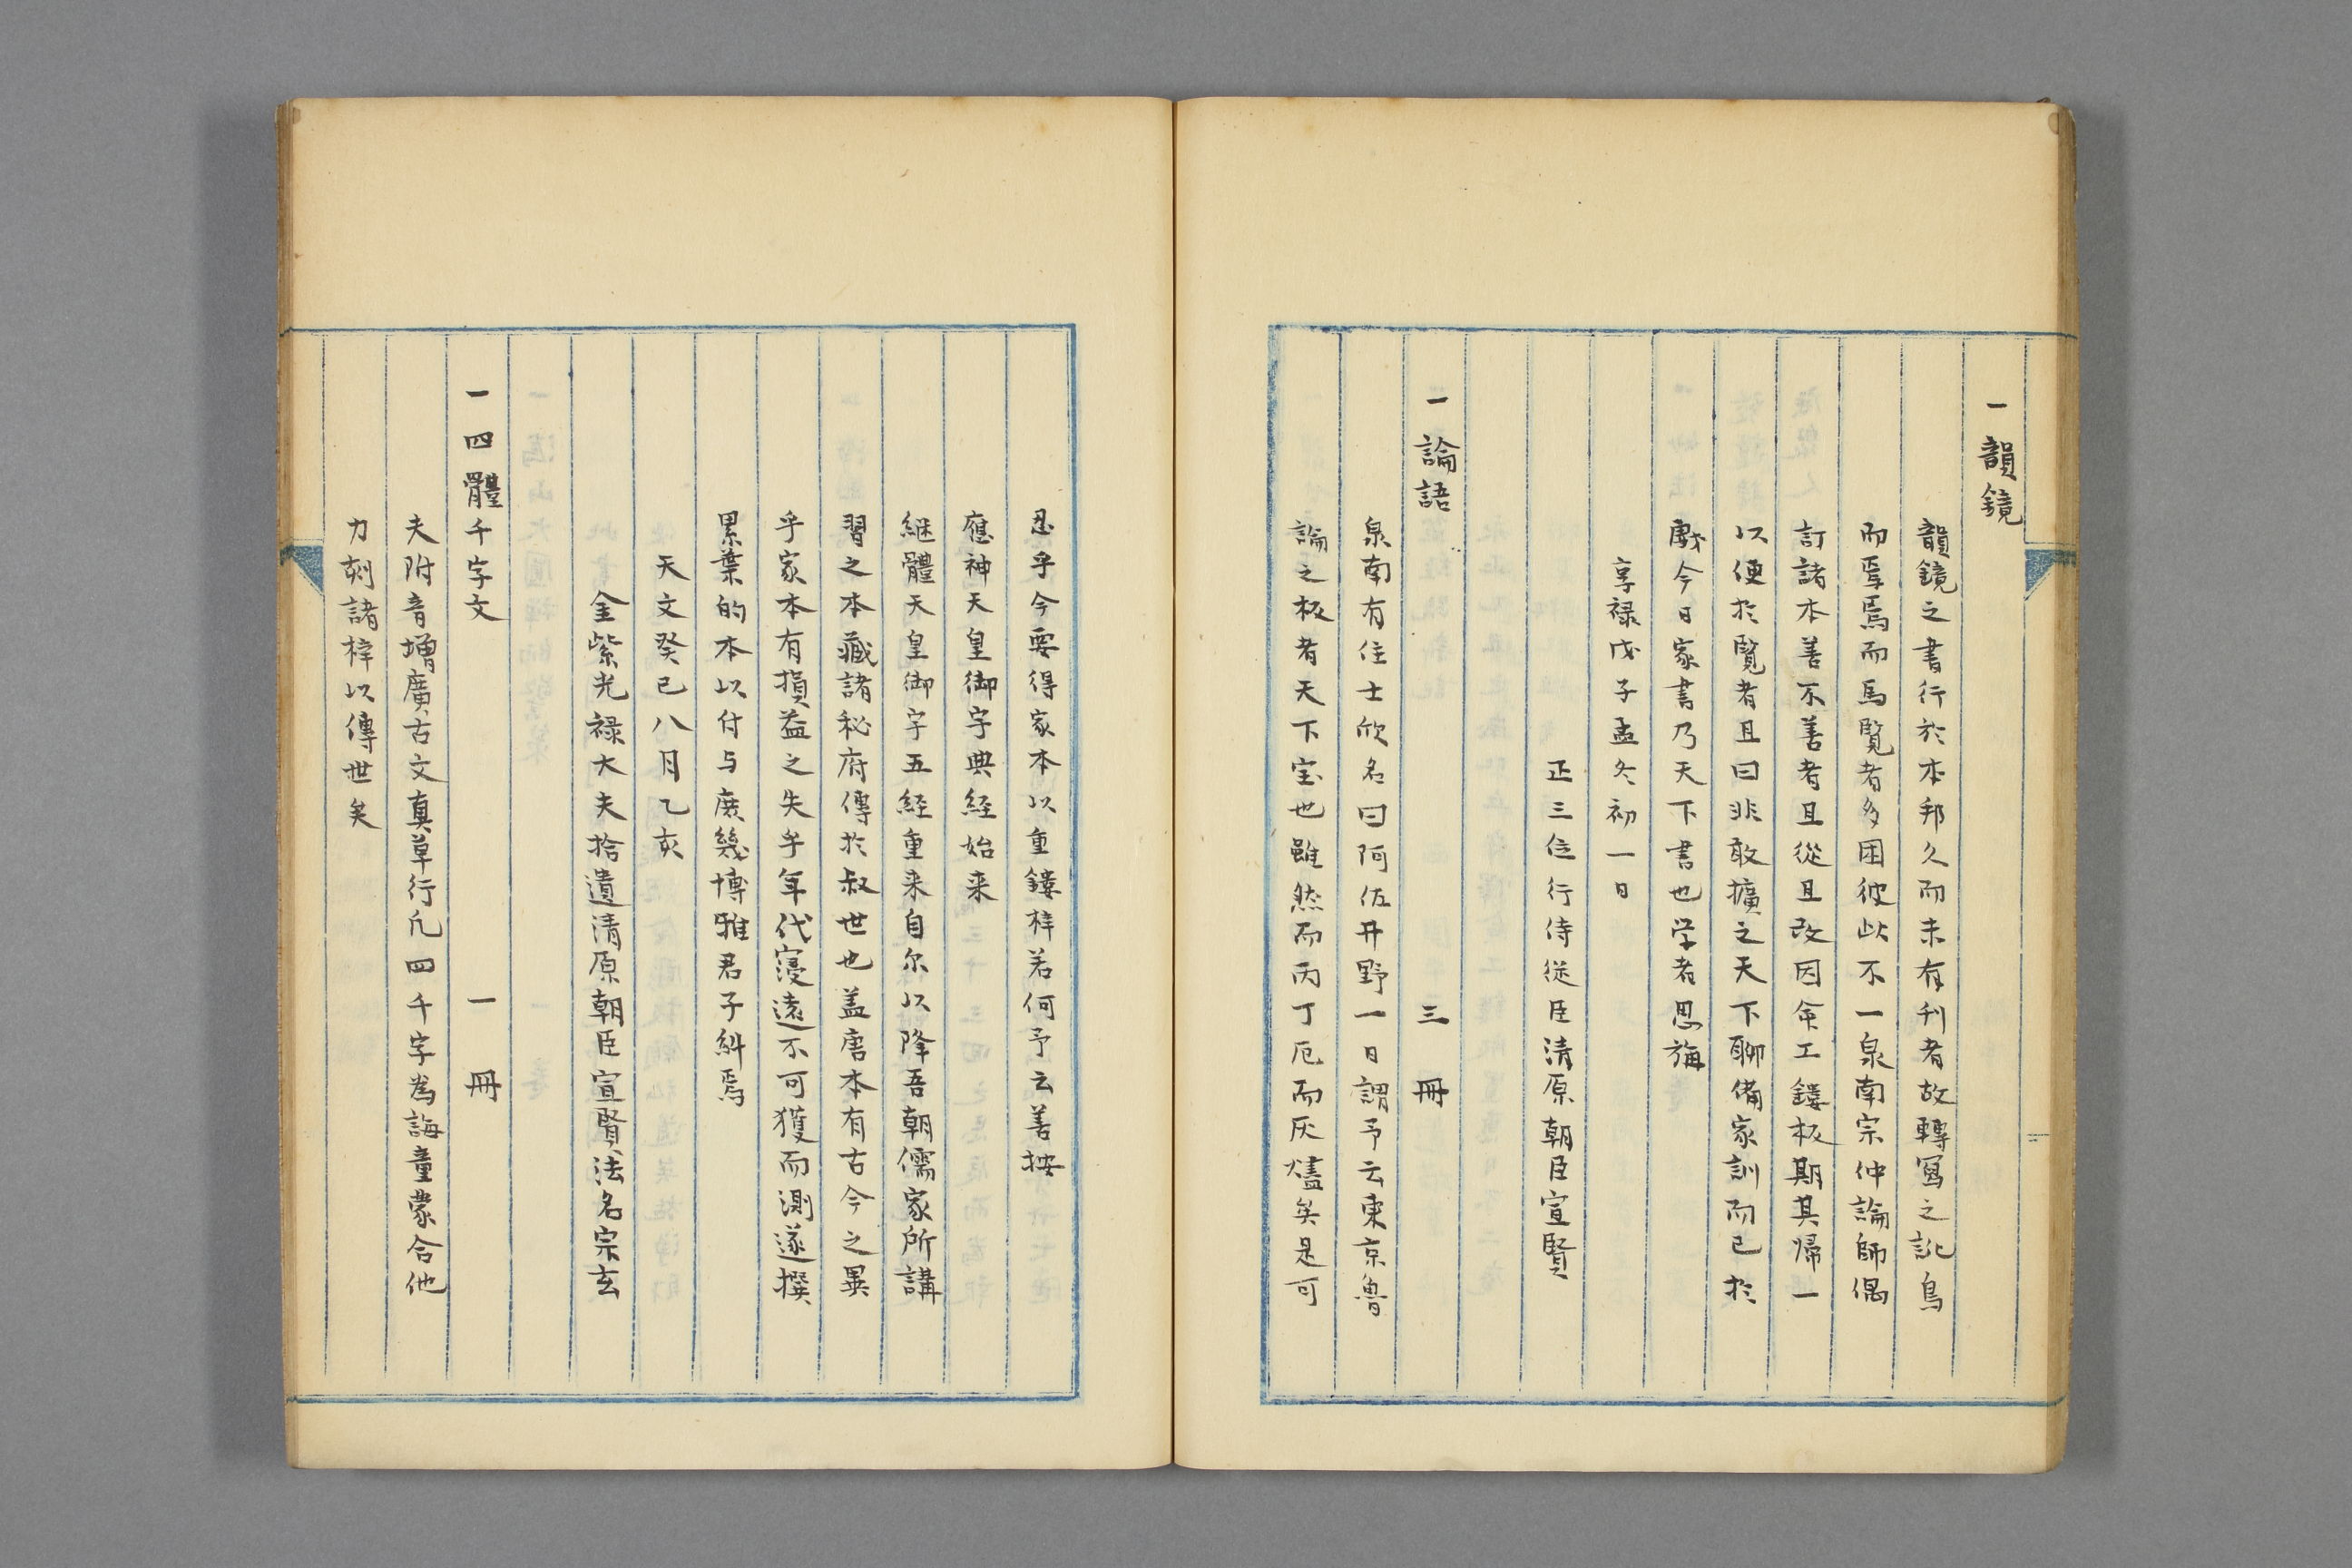 一 韻鏡
韻鏡之書行於本邦久而未有刊者故轉寫之訛烏
而焉焉而馬覧者多困彼此不一泉南宗仲論師偶
訂諸本善不善者且從且改因命工鏤板期其帰一
以便於覧者且曰非敢擴之天下聊備家訓而已於
戲今日家書乃天下書也学者思旃
享禄戊子孟冬初一日
正三位行侍従臣清原朝臣宣賢
一 論語 三冊
泉南有佳士欣名曰阿佐井野一日謂予云東京魯
論之板者天下宝也雖然而丙丁厄而灰燼矣是可
忍乎今要得家本以重鏤梓若何予云善按
應神天皇御宇典経始来
継體天皇御宇五経重来自尔以降吾朝儒家所講
習之本藏諸秘府傳於叔世也盖唐本有古今之異
乎家本有損益之失乎年代寖遠不可獲而測遂撰
累葉的本以付与庶幾博雅君子糾焉
天文癸巳八月乙亥
金紫光禄大夫拾遺清原朝臣宣賢法名宗玄
一 四體千字文 一冊
夫附音増廣古文真草行凢四千字為誨童蒙合他
力刻諸梓以傳世矣